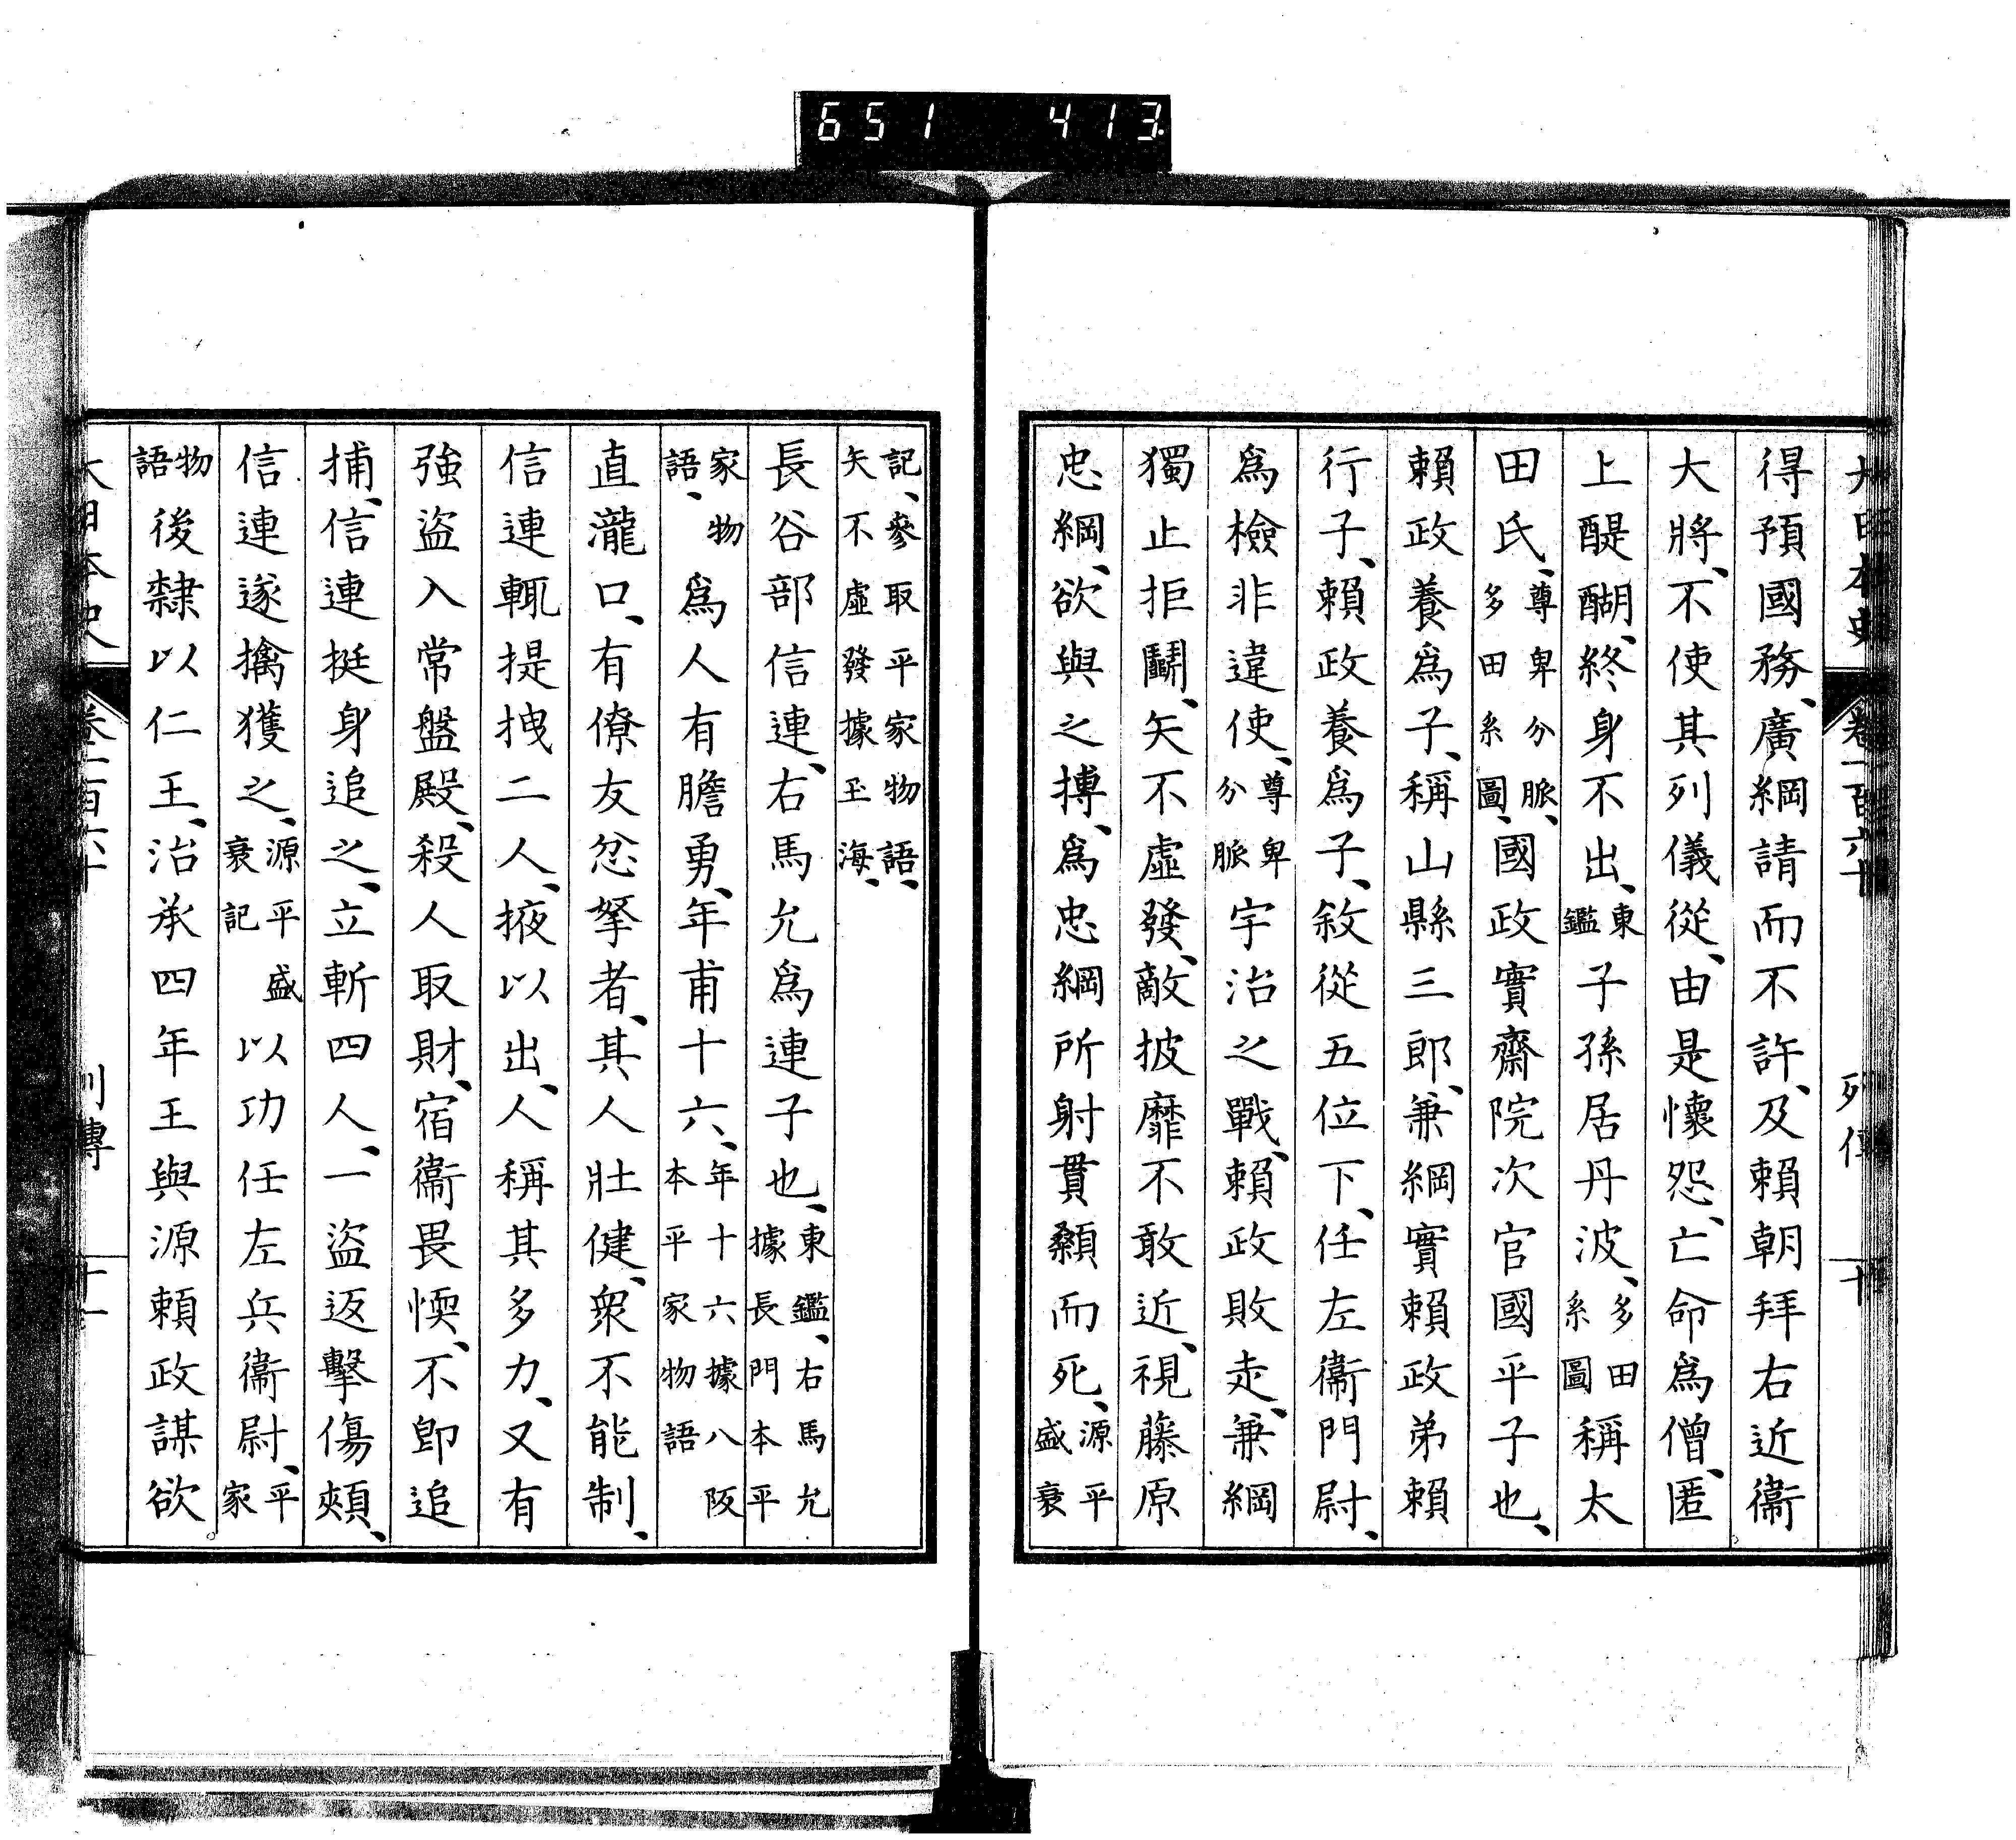 651 413
大日本史 卷一百六十 列傳 十
得預國務、廣綱請而不許、及賴朝拜右近衞
大將、不使其列儀從、由是懷怨、亡命爲僧、匿
上醍醐、終身不出、東鑑子孫居丹波、多田系圖稱太
田氏、尊卑分脈、多田系圖、國政實齋院次官國平子也、
賴政養爲子、稱山縣三郎、兼綱實賴政弟賴
行子、賴政養爲子、敘從五位下、任左衞門尉、
爲檢非違使、尊卑分脈宇治之戰、賴政敗走、兼綱
獨止拒鬭、矢不虛發、敵披靡不敢近、視藤原
忠綱、欲與之搏、爲忠綱所射貫顙而死、源平盛衰
記、參取平家物語、矢不虛發據玉海、
長谷部信連、右馬允爲連子也、東鑑、右馬允據長門本平
家物語、爲人有膽勇、年甫十六、年十六據八阪本平家物語
直瀧口、有僚友忿拏者、其人壯健、衆不能制、
信連輒提拽二人、掖以出、人稱其多力、又有
強盜入常盤殿、殺人取財、宿衞畏愞、不卽追
捕、信連挺身追之、立斬四人、一盜返擊傷頰、
信連遂擒獲之、源平盛衰記以功任左兵衞尉、平家
物語後隸以仁王、治承四年王與源賴政謀欲
大日本史 卷一百六十 列傳 十一